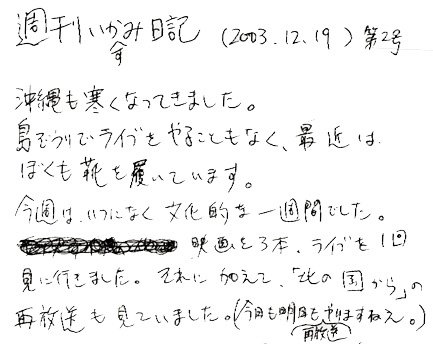 週刊いかみ日記 (2003.12.19) 第2号
す
沖縄も寒くなってきました。
島ぞうりでライブをやることもなく、最近は
ぼくも靴を履いています。
今週は、いつになく文化的な一週間でした。
映画を3本、ライブを1回
見に行きました。それに加えて、「北の国から」の
再放送も見ていました。(今日も明日もやりますねえ。)
再放送